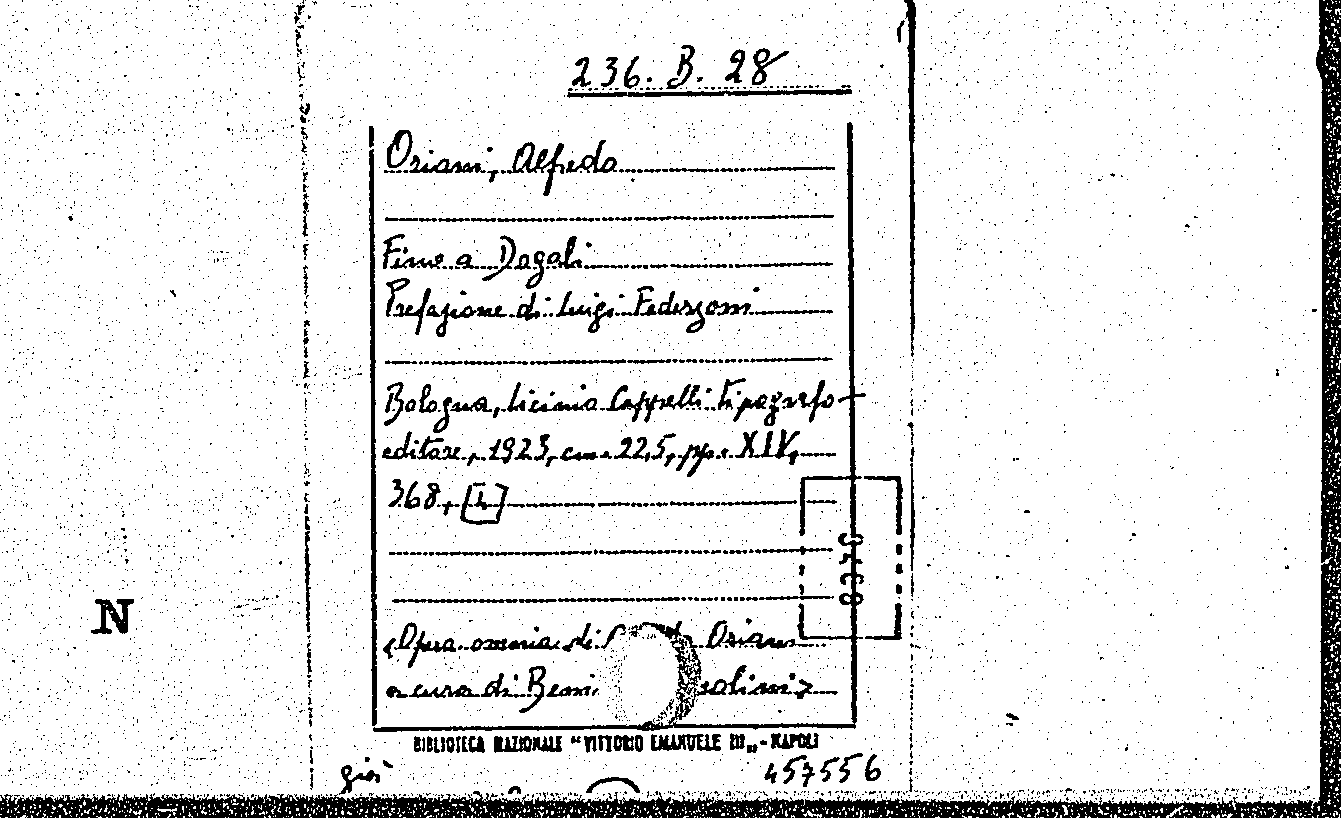 236. B. 28
Oriani, Alfredo
Fino a Dogali
Prefazione di Luigi Federzoni
Bologna, Licinio Cappelli tipografo-
editore, 1923, cm. 22,5, pp. XIV,
368, [2]
<Opera omnia di Oriani
a cura di Beni solini>
BIBLIOTECA NAZIONALE "VITTORIO EMANUELE III„ - NAPOLI
457556
N